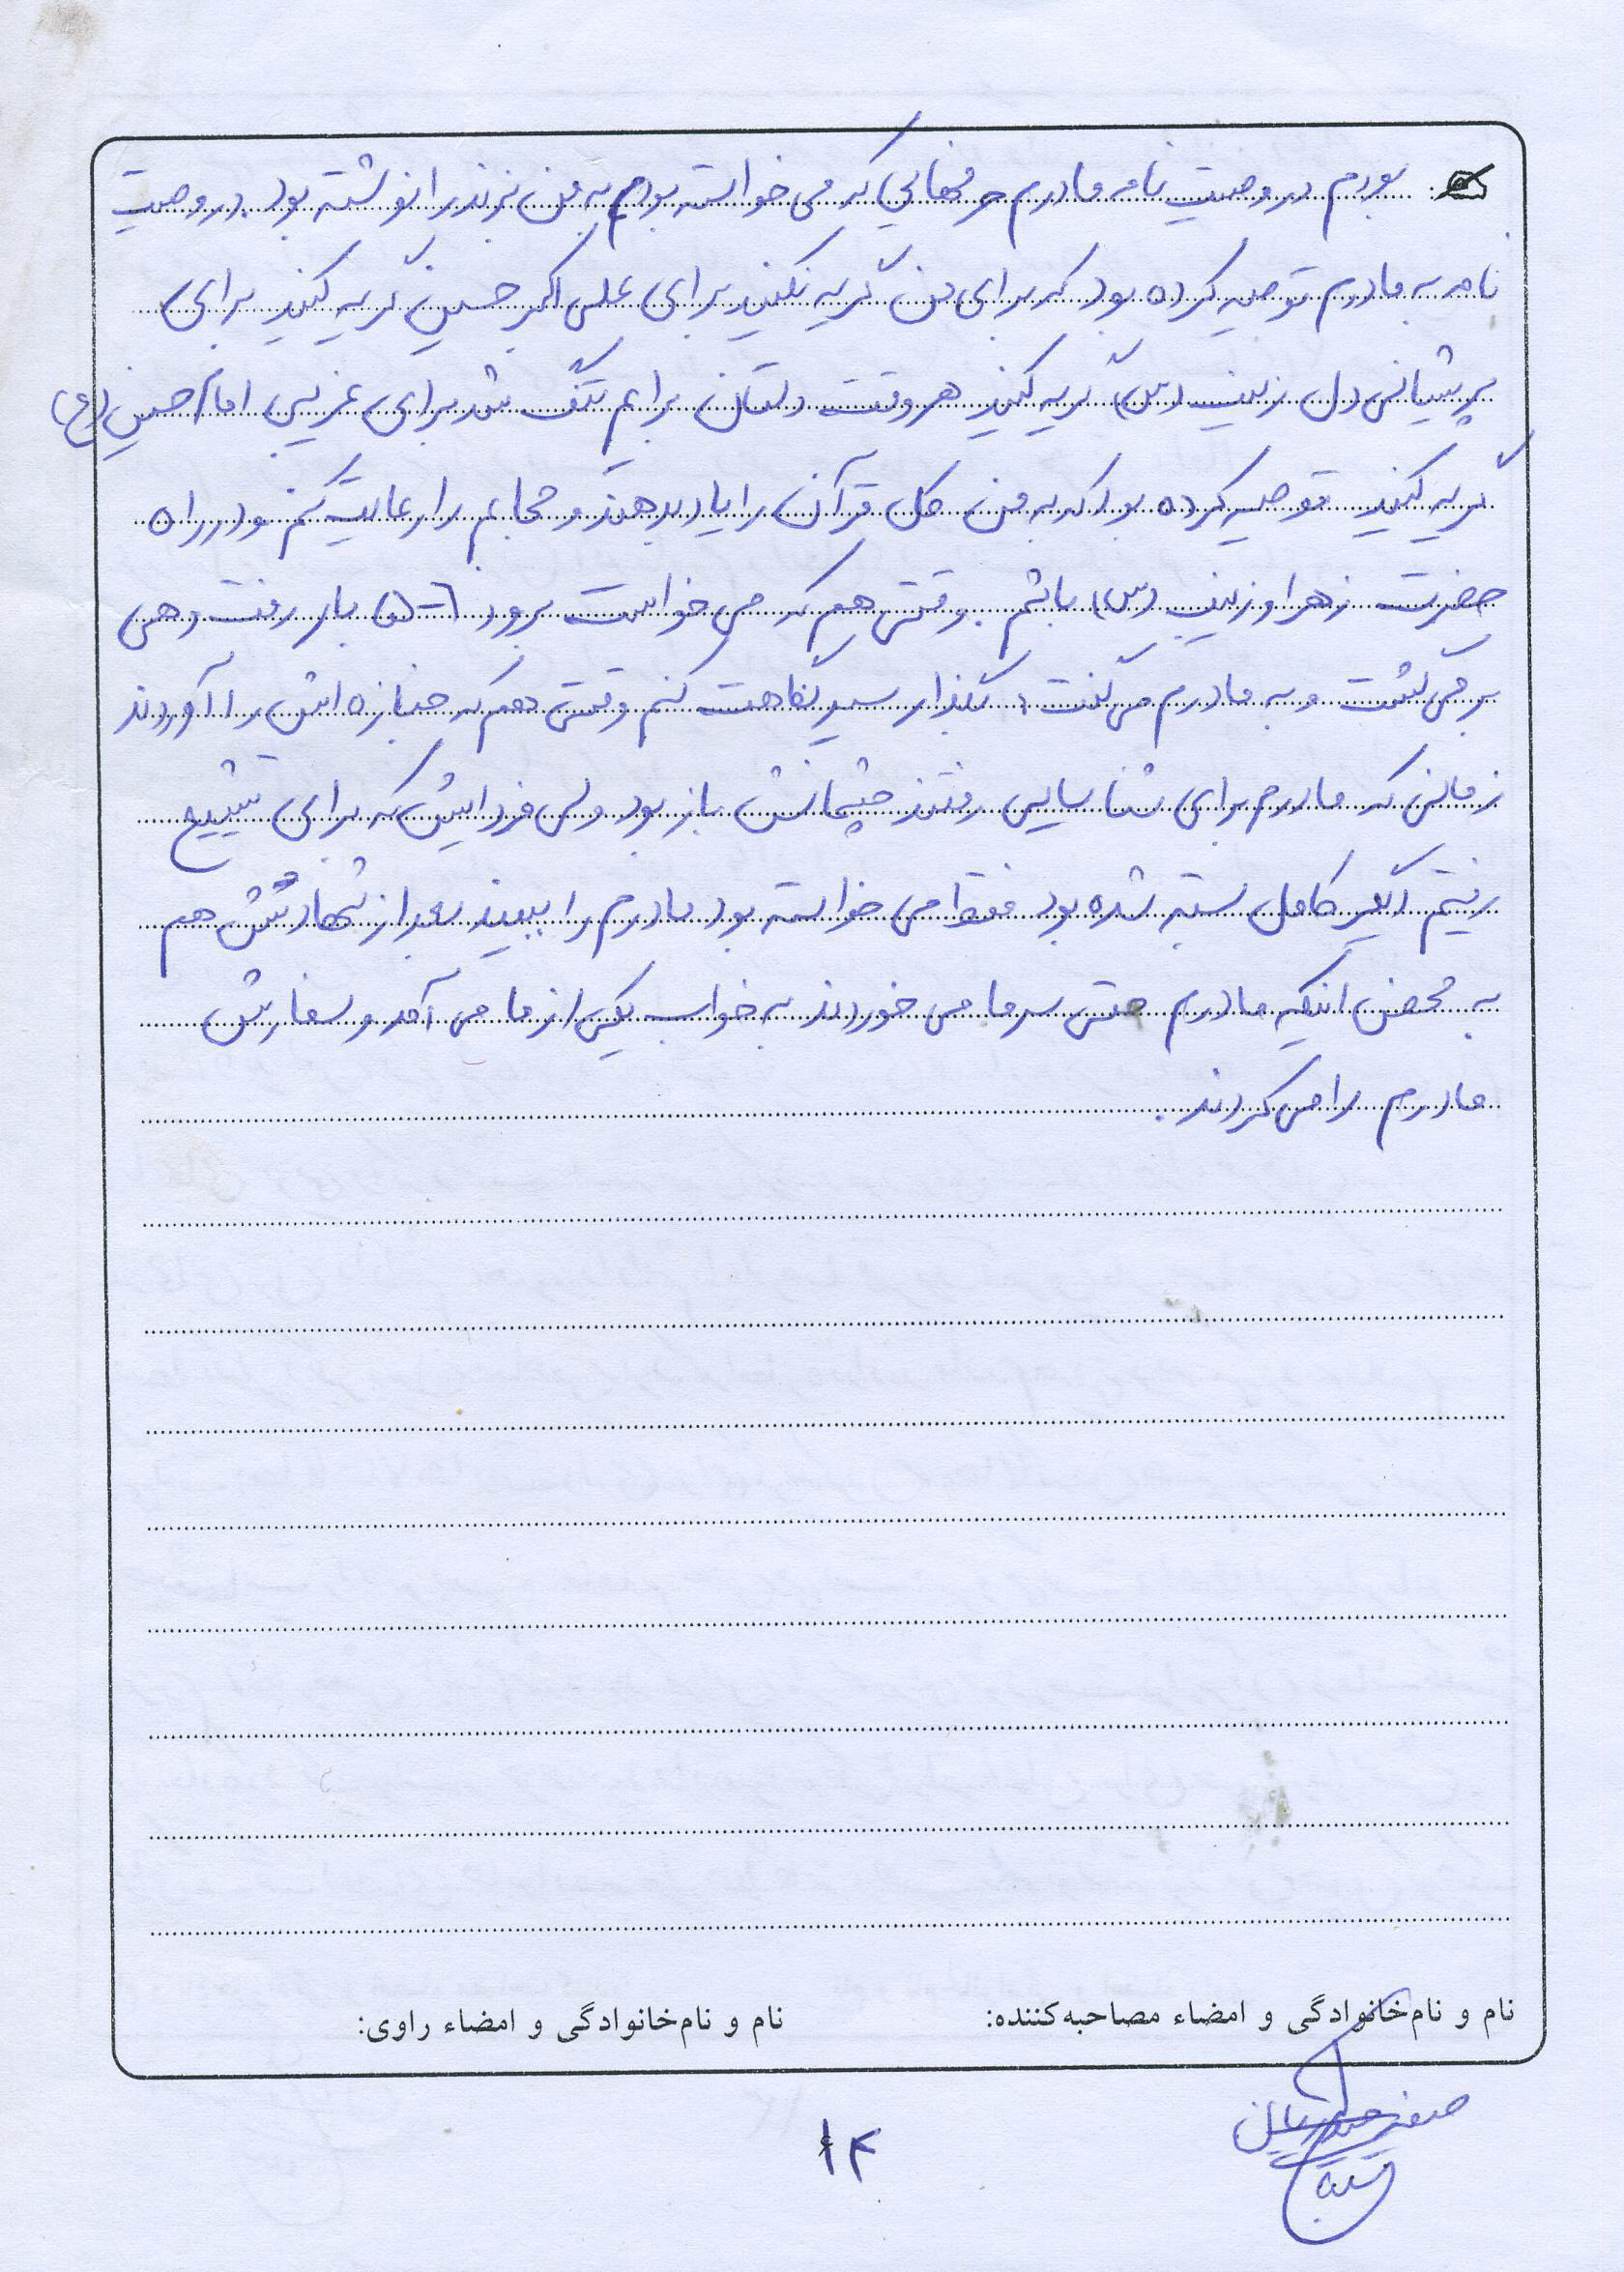 بودم در وصیت نامه مادرم حرفهایی که می خواسته بودم به من بزند را نوشته بود. در وصیت
نامه به مادرم توصیه کرده بود که برای من گریه نکنید برای علی اکبر حسین گریه کنید برای
پریشانی دل زینب (س) گریه کنید هر وقت دلتان برایم تنگ شد برای غریبی امام حسین (ع)
گریه کنید توصیه کرده بود که به من کل قرآن را یاد بدهند و حجابم را رعایت کنم و در راه
حضرت زهرا و زینب (س) باشم. وقتی هم که می خواست برود ۶-۵ بار رفت و هی
بر می گشت و به مادرم می گفت: بگذار سیر نگاهت کنم وقتی هم که جنازه اش را آوردند
زمانی که مادرم برای شناسایی رفتند چشمانش باز بود ولی فردایش که برای تشییع
رفتیم دیگر کامل بسته شده بود فقط می خواسته بود مادرم را ببیند بعد از شهادتش هم
به محض اینکه مادرم حتی سرما می خوردند به خواب یکی از ما می آمد و سفارش
مادرم را می کردند.
نام و نام‌خانوادگی و امضاء مصاحبه‌کننده: نام و نام‌خانوادگی و امضاء راوی:
۱۴